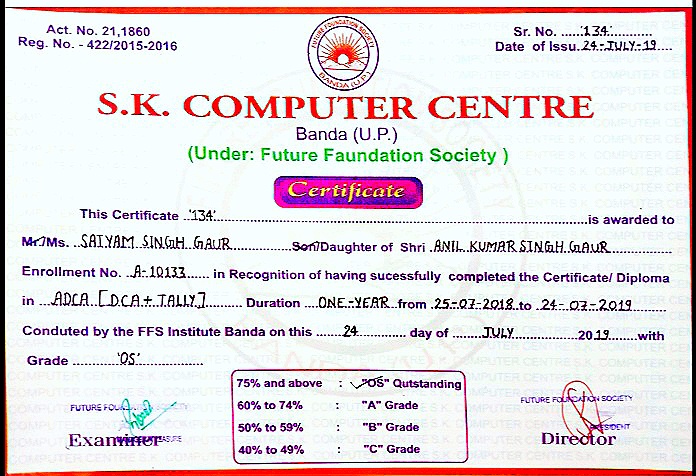 Act. No. 21,1860
Reg. No. - 422/2015-2016
FUTURE FOUNDATION SOCIETY
BANDA (U.P.)
Sr. No. .....'134'..........
Date of Issu. 24-JULY-19....
S.K. COMPUTER CENTRE
Banda (U.P.)
(Under: Future Faundation Society )
Certificate
This Certificate ..'134'..........is awarded to
Mr/Ms. ..SATYAM SINGH GAUR........Son/Daughter of Shri .ANIL KUMAR SINGH GAUR......
Enrollment No. .A-10133.... in Recognition of having sucessfully completed the Certificate/ Diploma
in ...ADCA [DCA + TALLY]........ Duration ...ONE-YEAR from 25-07-2018 to 24-07-2019
Conduted by the FFS Institute Banda on this .......24......... day of ........JULY........ 2019 with
Grade .........'OS'.............
75% and above : "OS" Outstanding
60% to 74% : "A" Grade
50% to 59% : "B" Grade
40% to 49% : "C" Grade
FUTURE FOUNDATION SOCIETY
Examiner
FUTURE FOUNDATION SOCIETY
PRESIDENT
Director